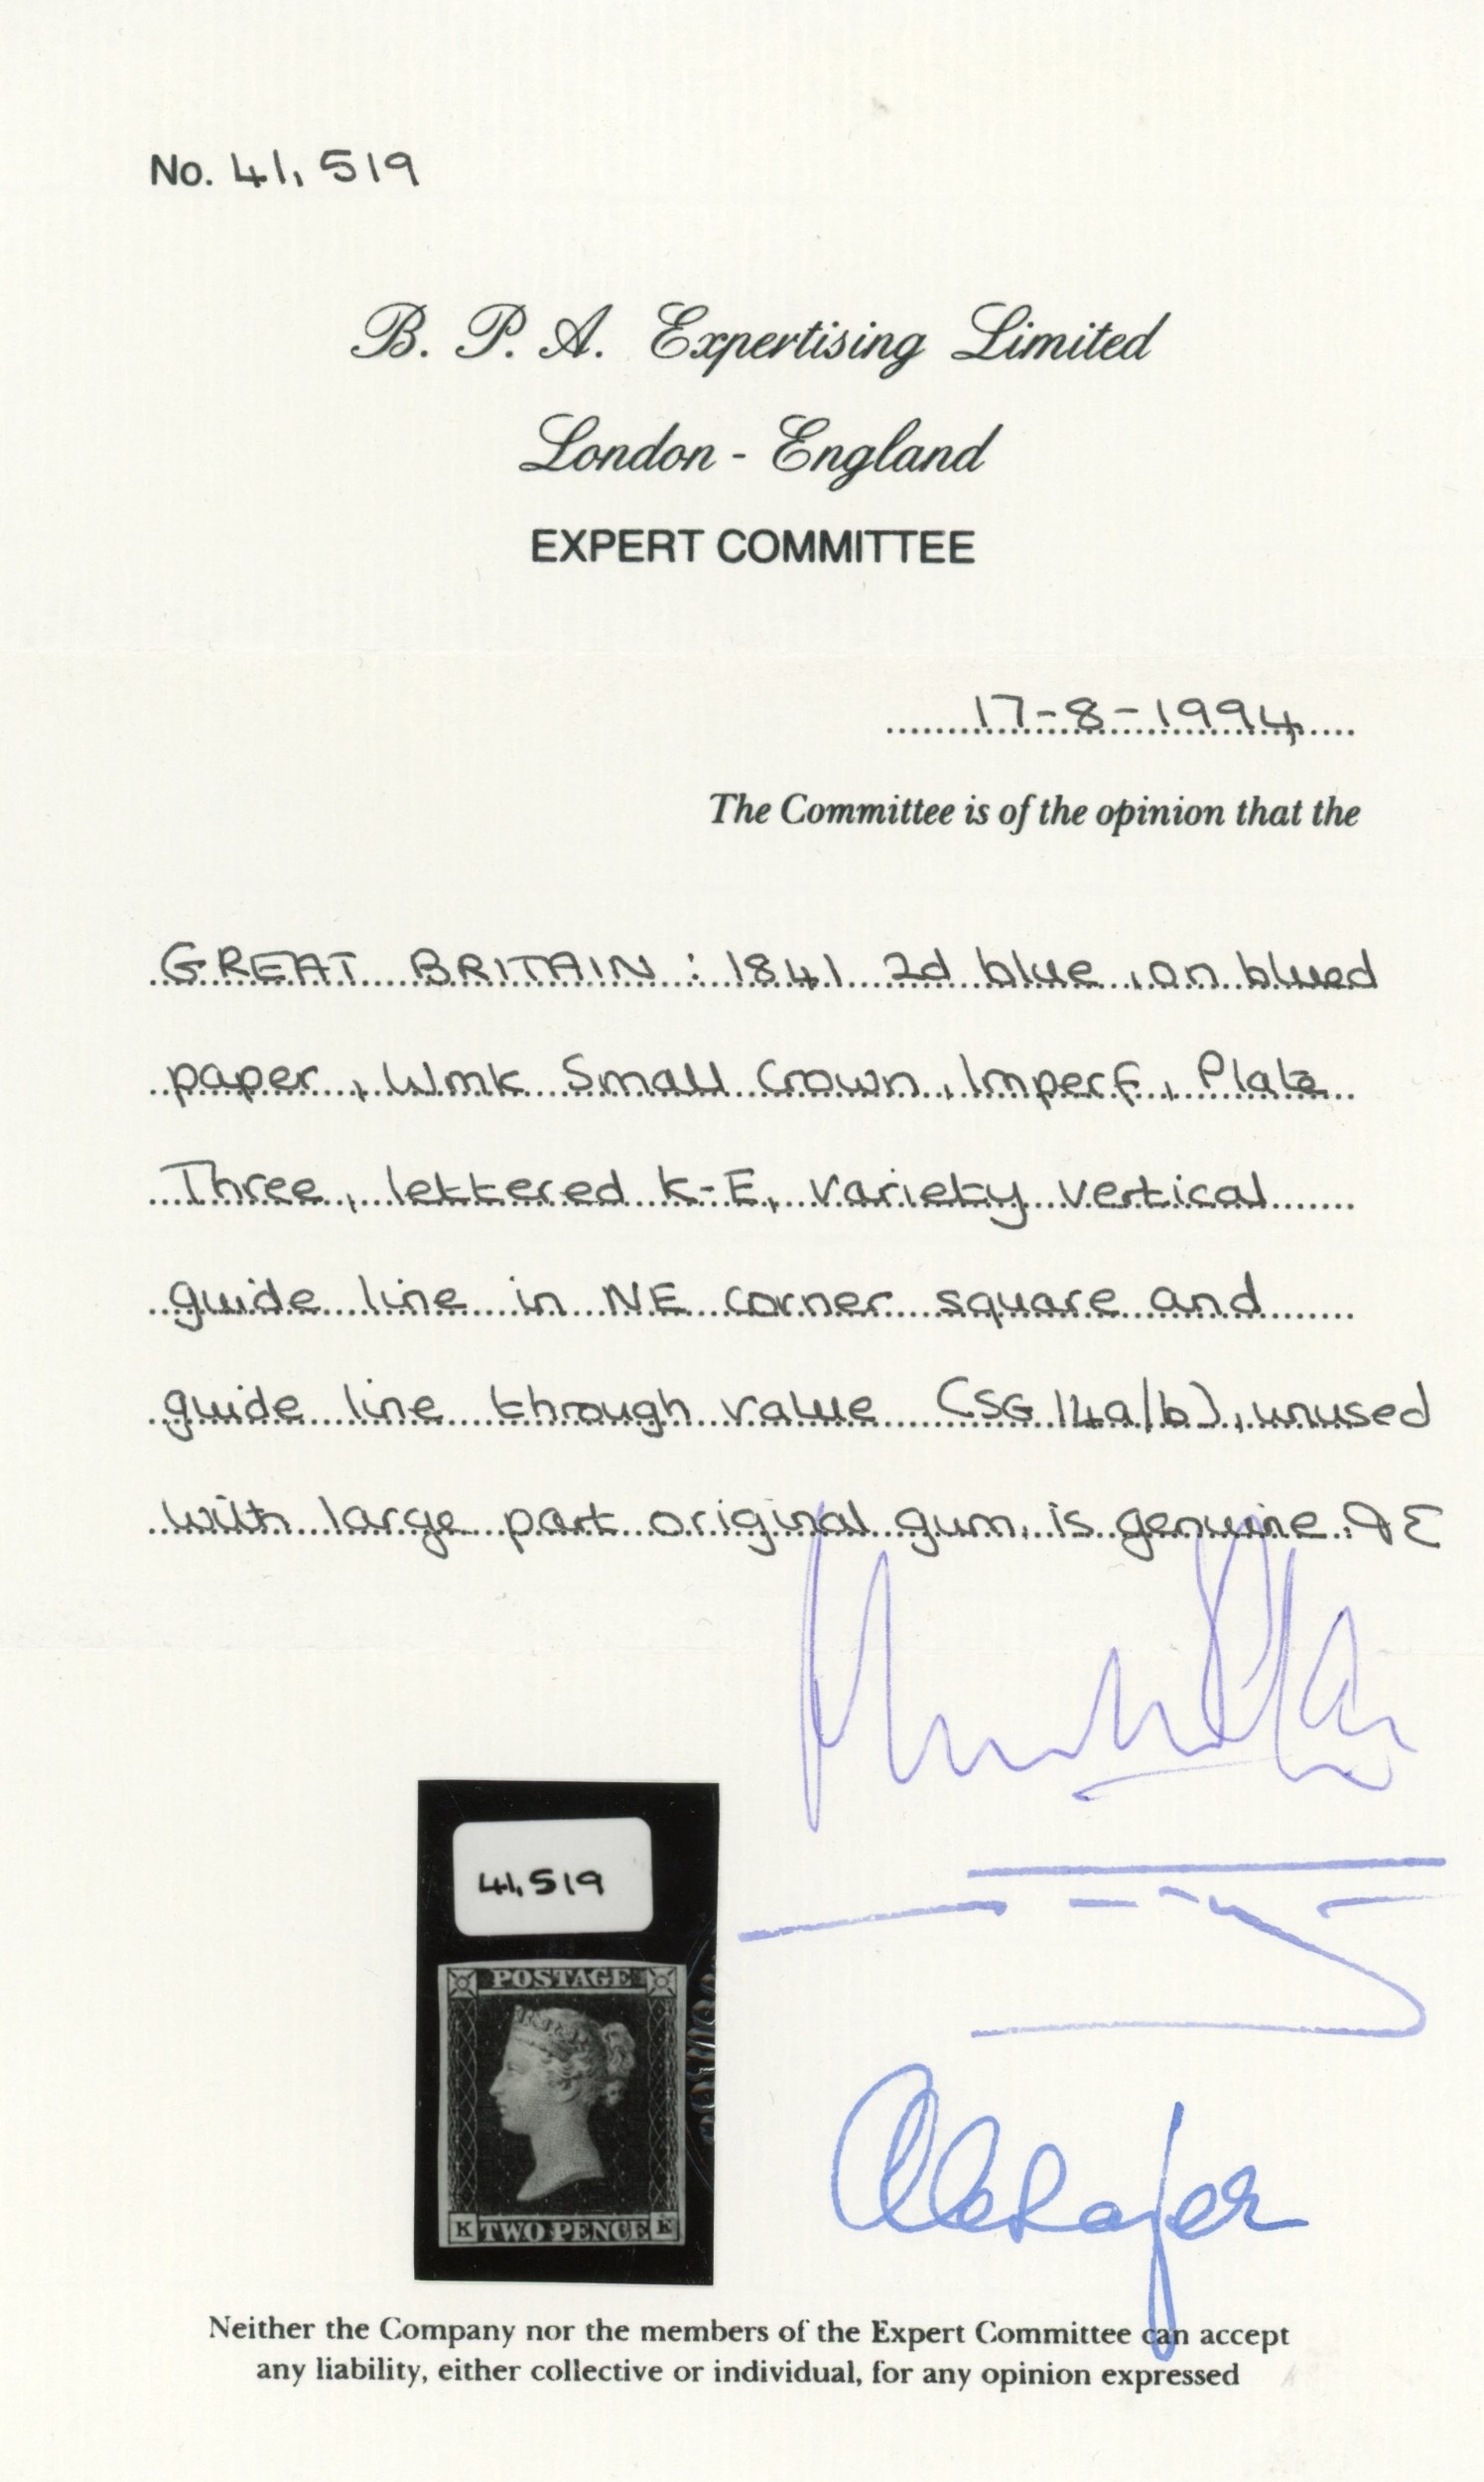 No. 41,519
B. P. A. Expertising Limited
London - England
EXPERT COMMITTEE
17-8-1994
The Committee is of the opinion that the
GREAT BRITAIN : 1841 2d blue, on blued
paper, Wmk Small Crown, Imperf, Plate
Three, lettered K-E, variety vertical
guide line in NE corner square and
guide line through value (SG 14a/b), unused
with large part original gum, is genuine.
41,519
POSTAGE
K TWO PENCE E
Neither the Company nor the members of the Expert Committee can accept
any liability, either collective or individual, for any opinion expressed